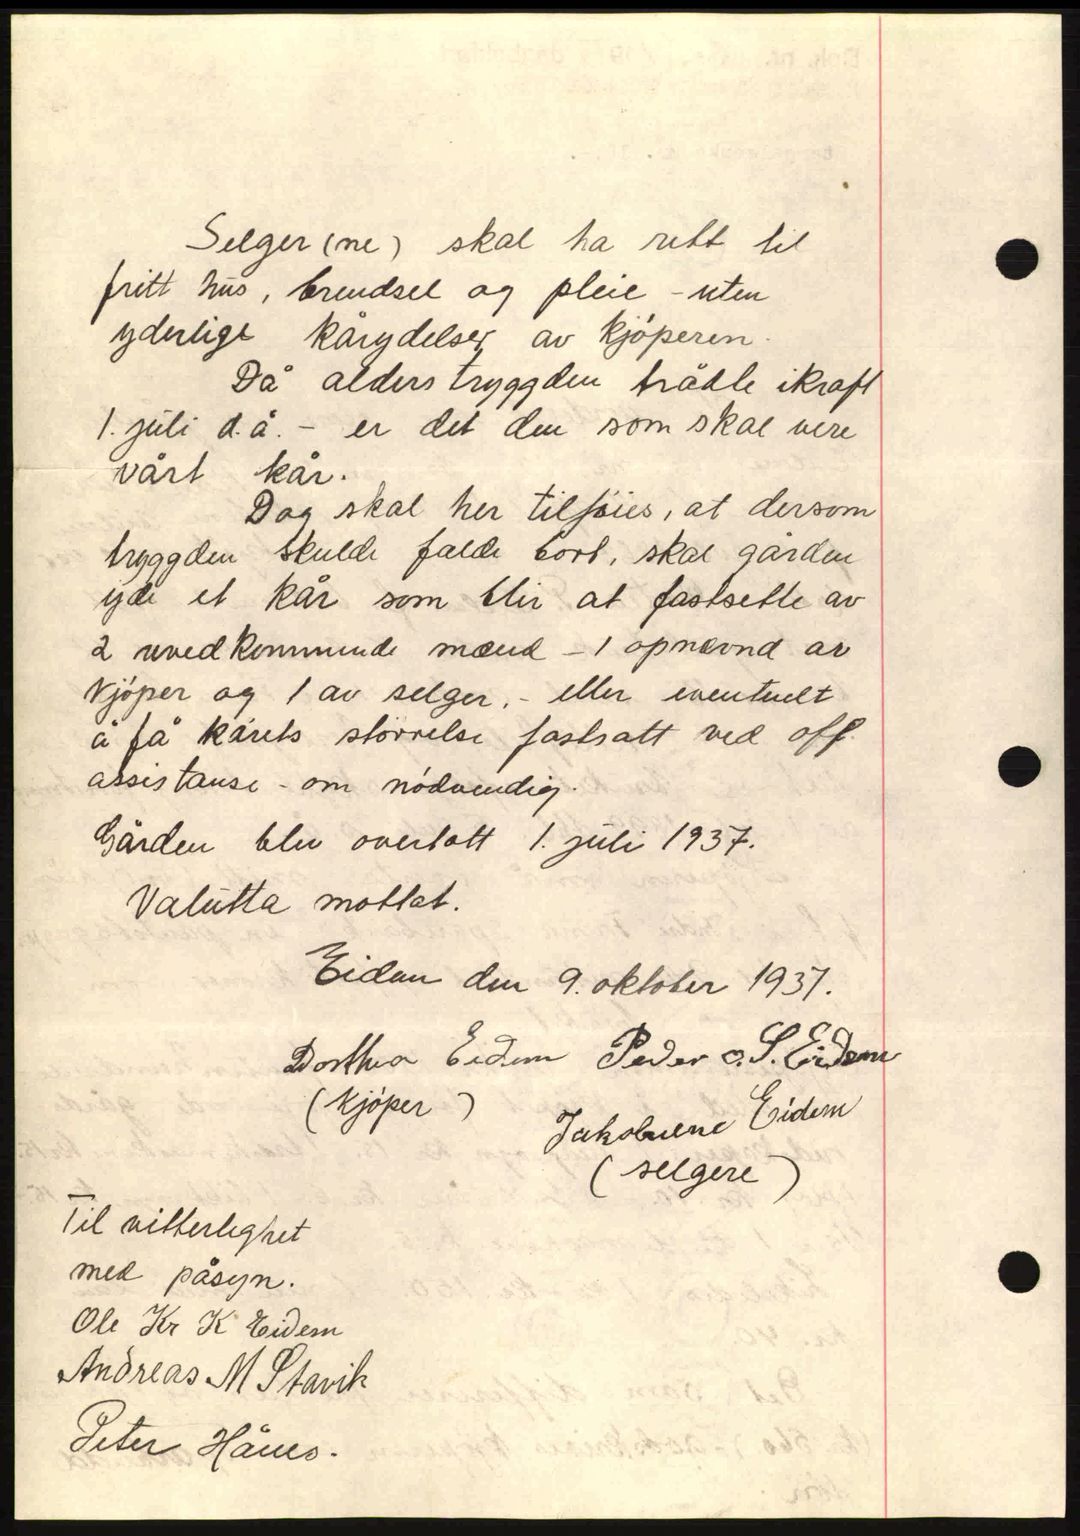 Selger (ne) skal ha rett til
fritt hus, brendsel og pleie - uten
yderlige kårydelser av kjøperen.
Då alderstryggden trådte ikraft
1. juli d.å. - er det den som skal vere
vårt kår.
Dog skal her tilføies, at dersom
tryggden skulde falde bort, skal gården
yde et kår som blir at fastsette av
2 uvedkommende mænd - 1 opnævnd av
kjøper og 1 av selger, - eller eventuelt
å få kårets størrelse fastsatt ved off.
assistanse - om nødvendig.
Gården blev overtatt 1. juli 1937.
Valutta mottat.
Eidem den 9. oktober 1937.
Dorthea Eidem Peder O. S. Eidem
(kjøper) Jakobine Eidem
(selgere)
Til vitterlighet
med påsyn.
Ole Kr K Eidem
Andreas M Stavik
Peter Hånes.